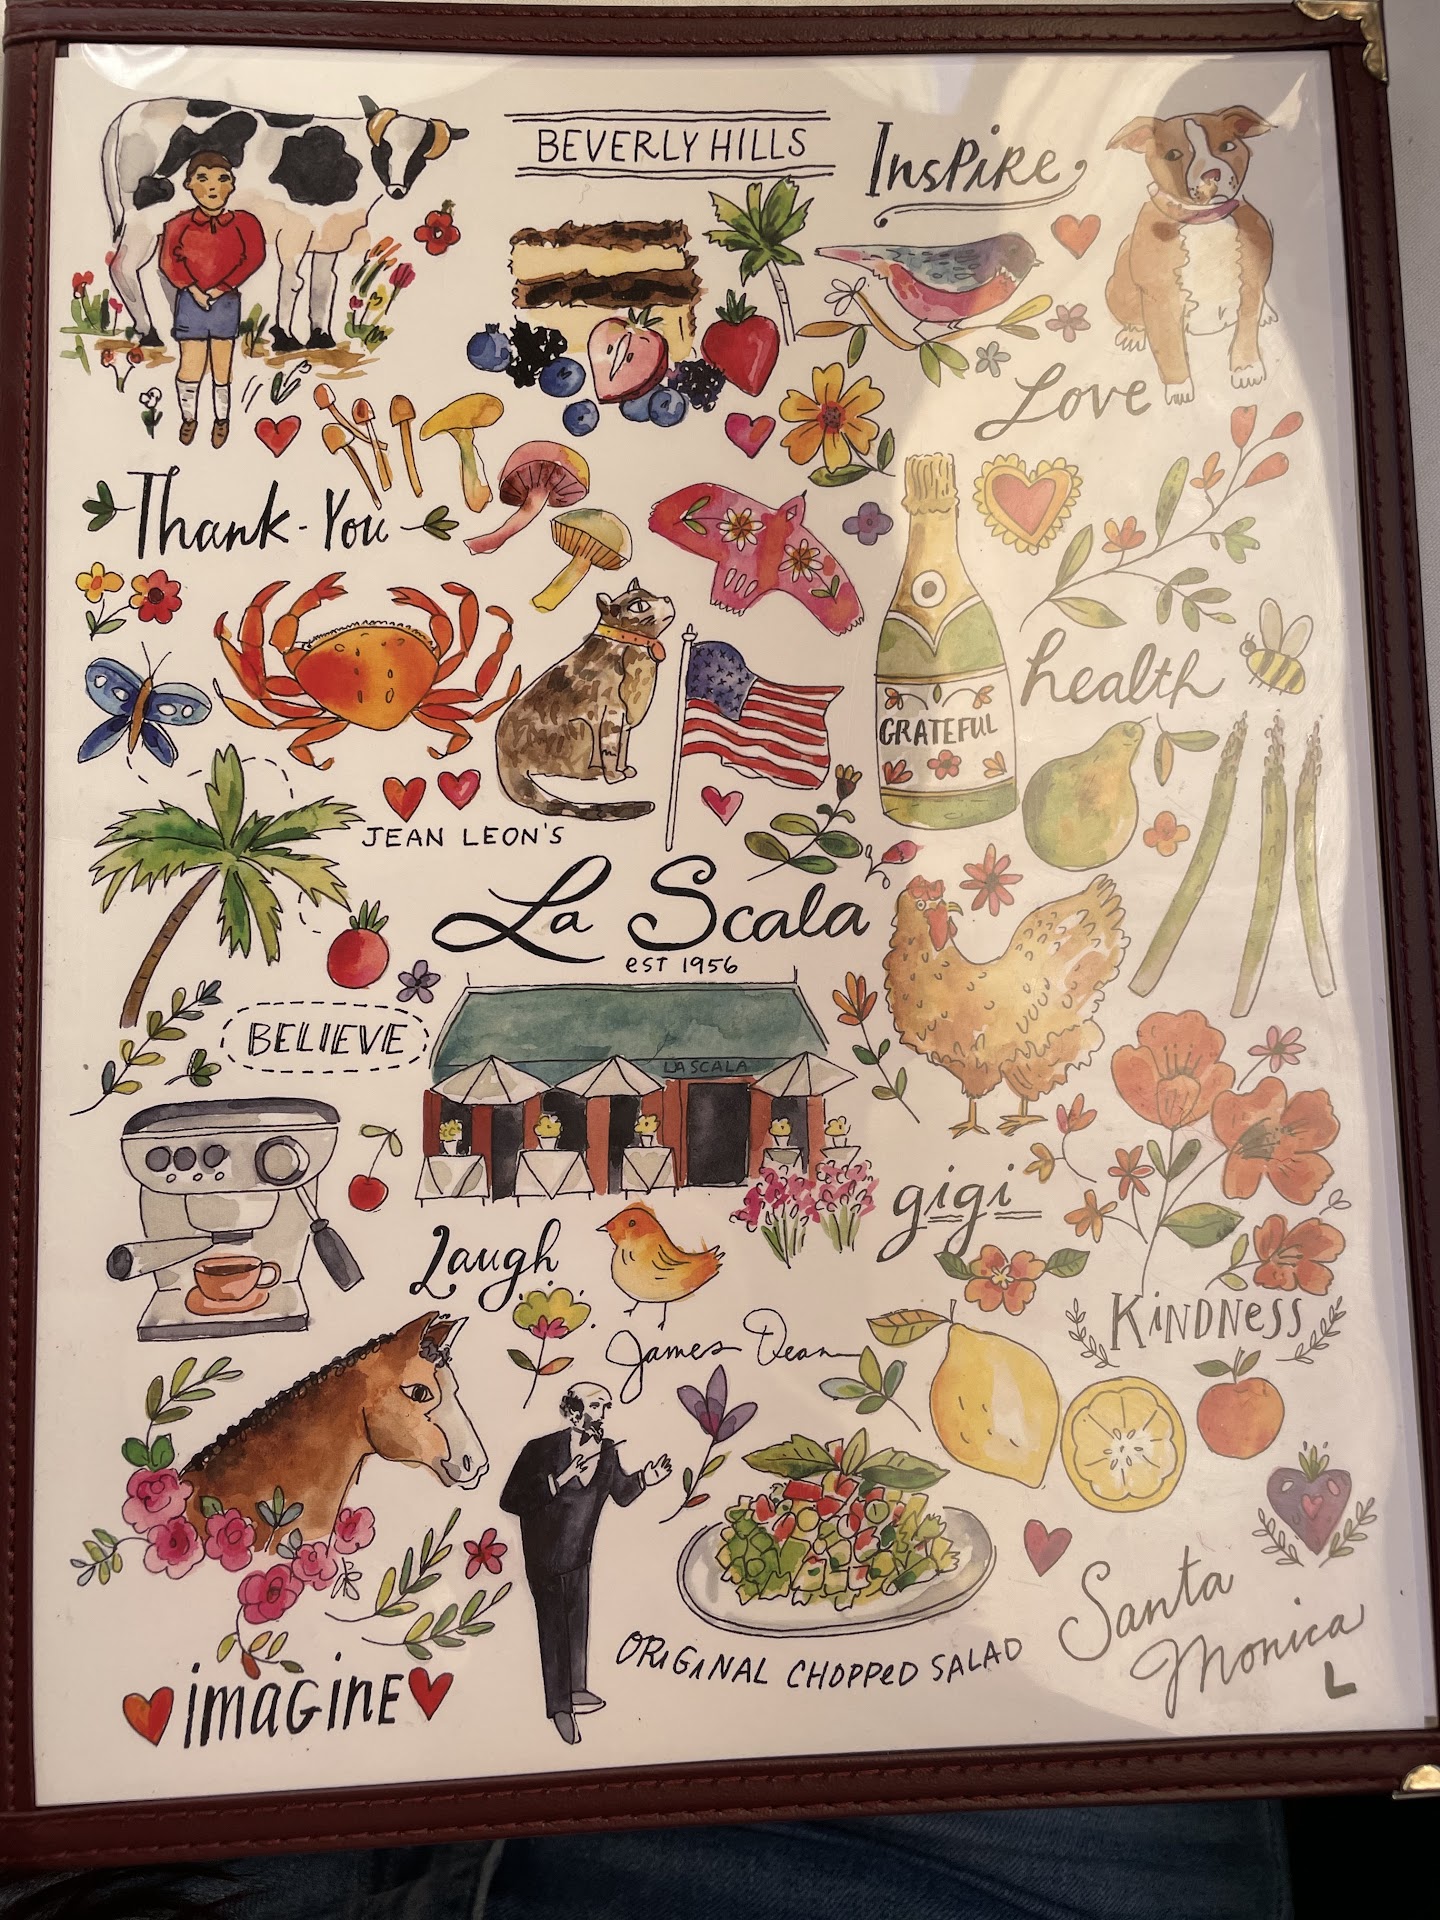 BEVERLY HILLS
Inspire
Love
Thank-You
health
GRATEFUL
JEAN LEON'S
La Scala
EST 1956
BELIEVE
LA SCALA
gigi
Laugh
KINDNESS
James Dean
ORIGINAL CHOPPED SALAD
Santa
Monica
L
imaGinE